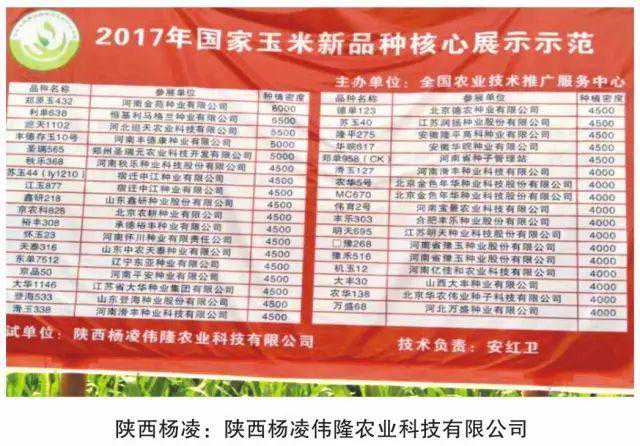 2017年国家玉米新品种核心展示示范
主办单位：全国农业技术推广服务中心
品种名称 参展单位 种植密度
郑原玉432 河南金苑种业有限公司 6000
利单638 恒基利马格兰种业有限公司 5500
巡天1102 河北巡天农业科技有限公司 5500
丰德存玉10号 河南丰德康种业有限公司 5000
圣瑞565 郑州圣瑞元农业科技开发有限公司 5000
秋乐368 河南秋乐种业科技股份有限公司 4500
苏玉44（ly1210） 宿迁中江种业有限公司 4500
江玉877 宿迁中江种业有限公司 4500
鑫研218 山东鑫研种业股份有限公司 4500
京农科828 北京农耕种业有限公司 4500
裕丰308 承德裕丰种业有限公司 4500
怀玉23 河南怀川种业有限责任公司 4500
天泰316 山东中农天泰种业有限公司 4500
东单7512 辽宁东亚种业有限公司 4500
京品50 河南平安种业有限公司 4500
大华1146 江苏省大华种业集团有限公司 4500
登海533 山东登海种业股份有限公司 4500
滑玉338 河南滑丰种业科技有限公司 4500
品种名称 参展单位 种植密度
德单123 北京德农种业有限公司 4500
苏玉40 江苏润扬种业股份有限公司 4500
隆平275 安徽隆平高科种业有限公司 4500
华皖617 安徽华皖种业有限公司 4500
郑单958（CK） 河南省种子管理站 4500
滑玉127 河南滑丰种业科技有限公司 4000
农华5号 北京金色年华种业科技股份有限公司 4000
MC670 北京金色年华种业科技股份有限公司 4000
伟育2号 河南宝景农业科技有限公司 4000
丰乐303 合肥丰乐种业股份有限公司 4000
明天695 江苏明天种业科技股份有限公司 4000
豫268 河南省豫玉种业股份有限公司 4000
豫禾516 河南省豫玉种业股份有限公司 4000
机玉12 河南亿佳和农业科技有限公司 4000
大丰30 山西大丰种业有限公司 4000
农华138 北京华农伟业种子科技有限公司 4000
万盛68 河北万盛种业有限公司 4000
试单位：陕西杨凌伟隆农业科技有限公司
技术负责：安红卫
陕西杨凌：陕西杨凌伟隆农业科技有限公司